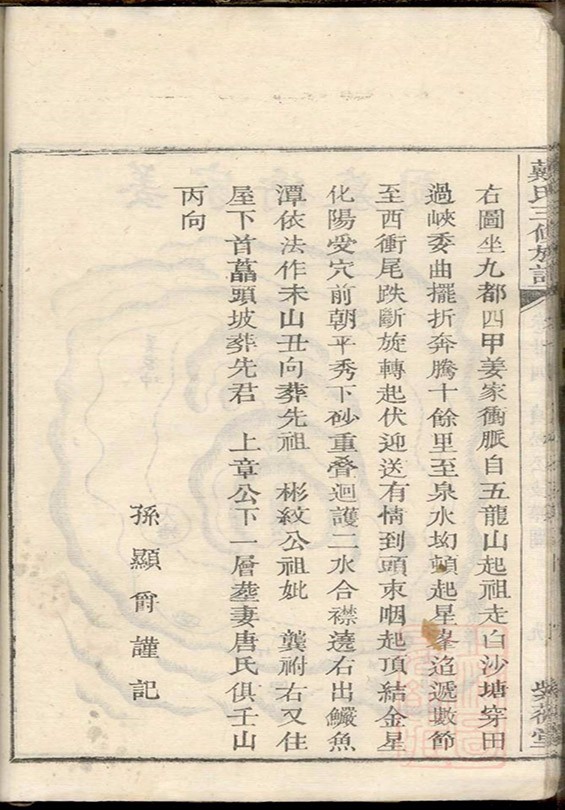 戴氏三修族譜
紫薇堂
右圖坐九都四甲姜家衝脈自五龍山起祖走白沙塘穿田
過峽委曲擺折奔騰十餘里至泉水坳頓起星峯迢遞數節
至西衝尾跌斷旋轉起伏迎送有情到頭束咽起頂結金星
化陽受穴前朝平秀下砂重叠迴護二水合襟遶右出鱖魚
潭依法作未山丑向葬先祖 彬紋公祖妣 龔祔右又住
屋下首藠頭坡葬先君 上章公下一層塟妻唐氏俱壬山
丙向
孫顯爵謹記